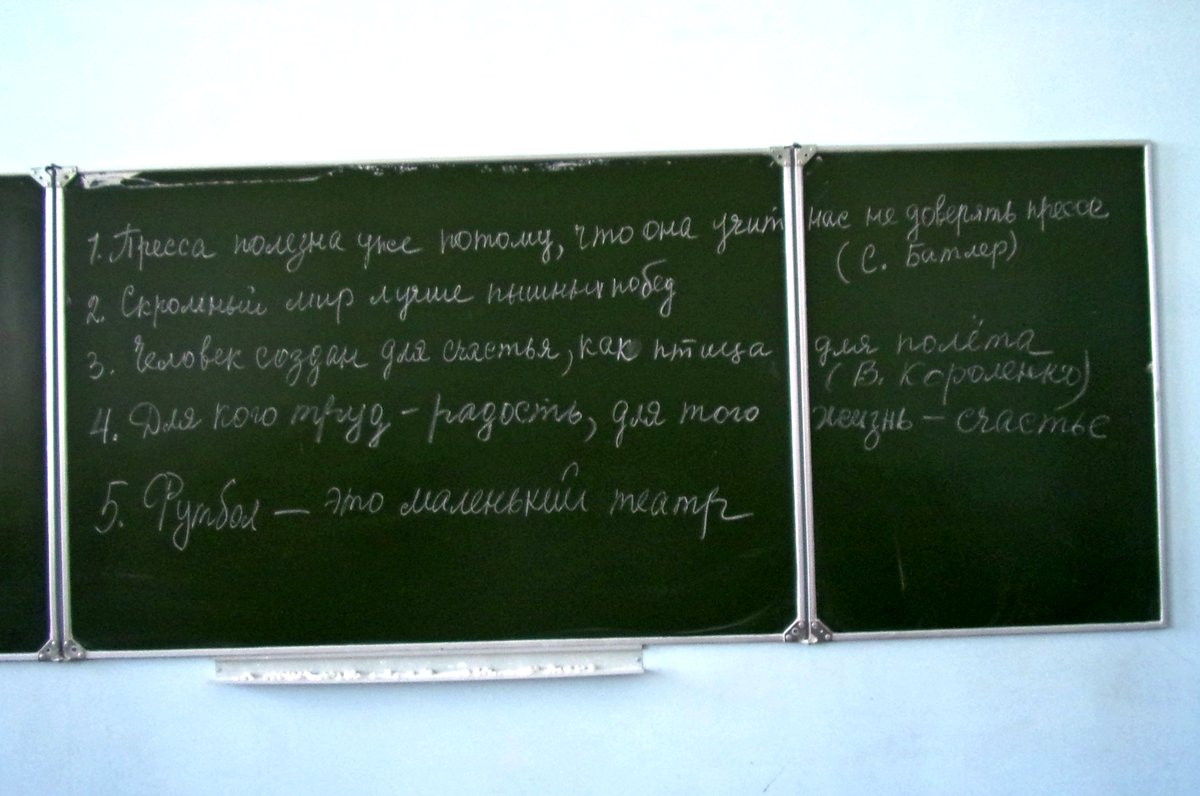 1. Пресса полезна уже потому, что она учит нас не доверять прессе
(С. Битлер)
2. Скромный мир лучше пышных побед
3. Человек создан для счастья, как птица для полёта
(В. Короленко)
4. Для кого труд – радость, для того жизнь – счастье
5. Футбол – это маленький театр